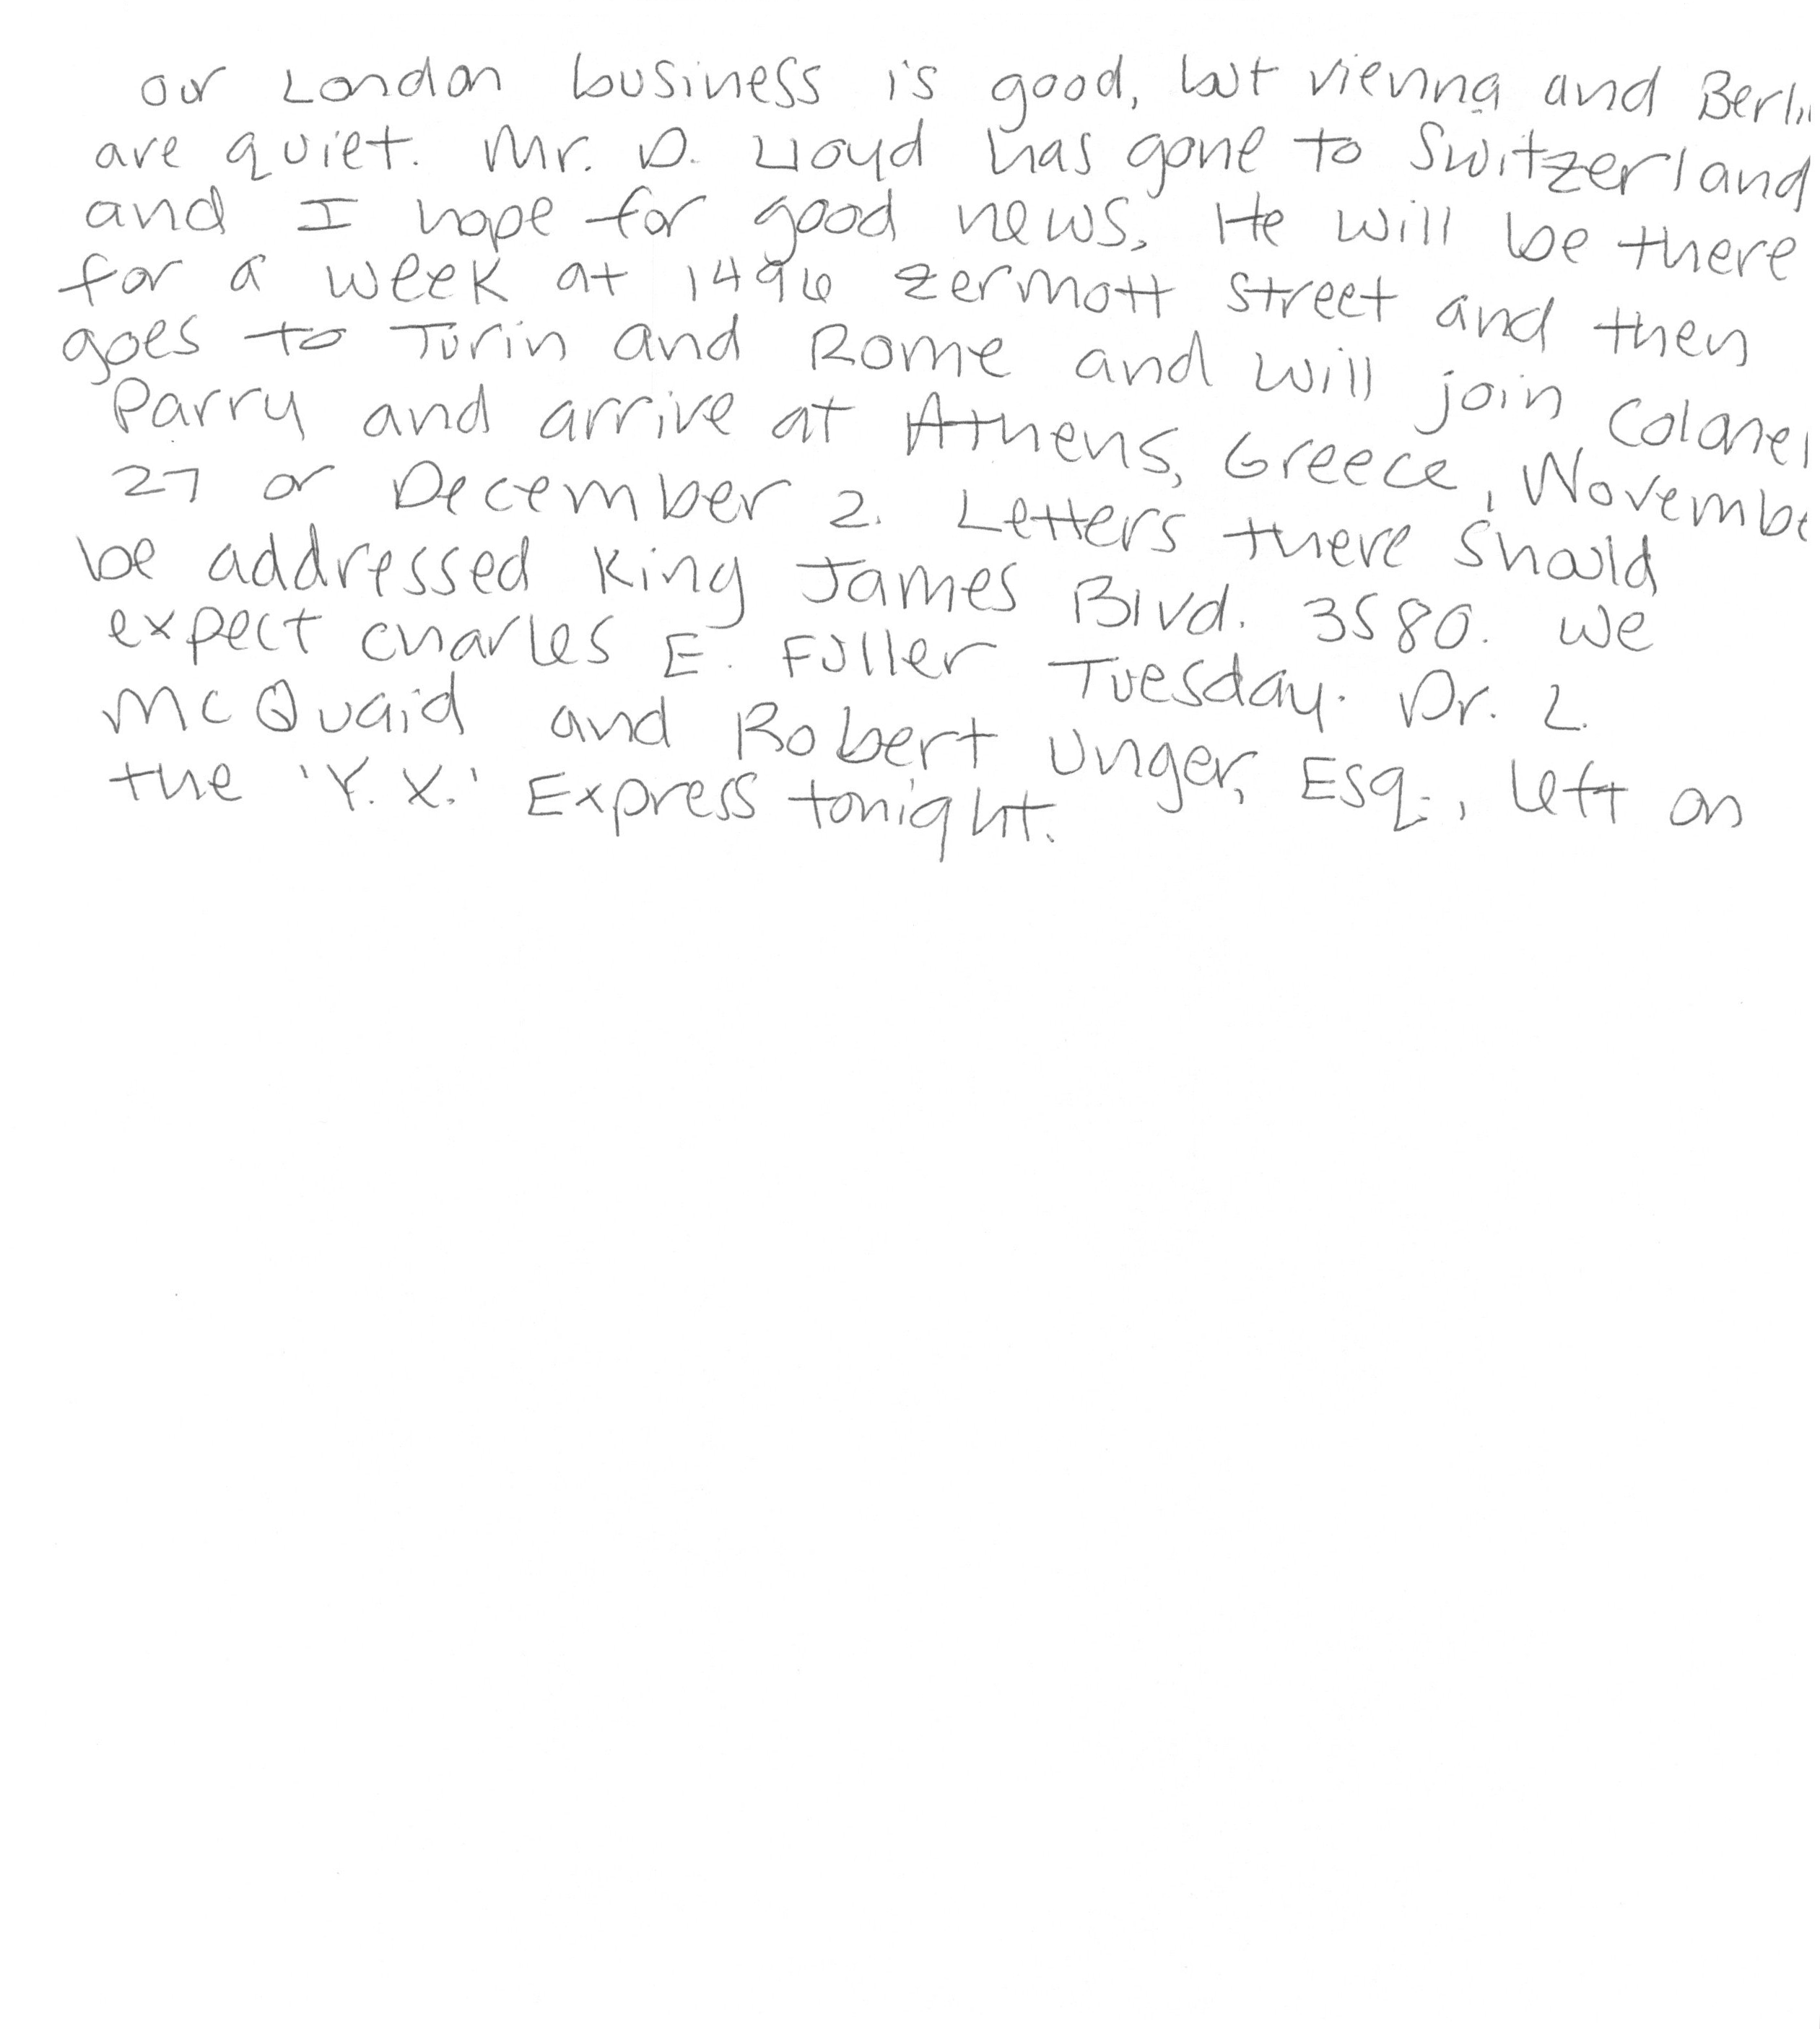 our London business is good, but vienna and Berlin
are quiet. Mr. D. Lloyd has gone to Switzerland
and I hope for good news. He will be there
for a week at 1496 zermott street and then
goes to Turin and Rome and will join Colonel
Parry and arrive at Athens, Greece, November
27 or December 2. Letters there should
be addressed King James Blvd. 3580. We
expect Charles E. Fuller Tuesday. Dr. L.
McQuaid and Robert Unger, Esq., left on
the 'Y.X.' Express tonight.